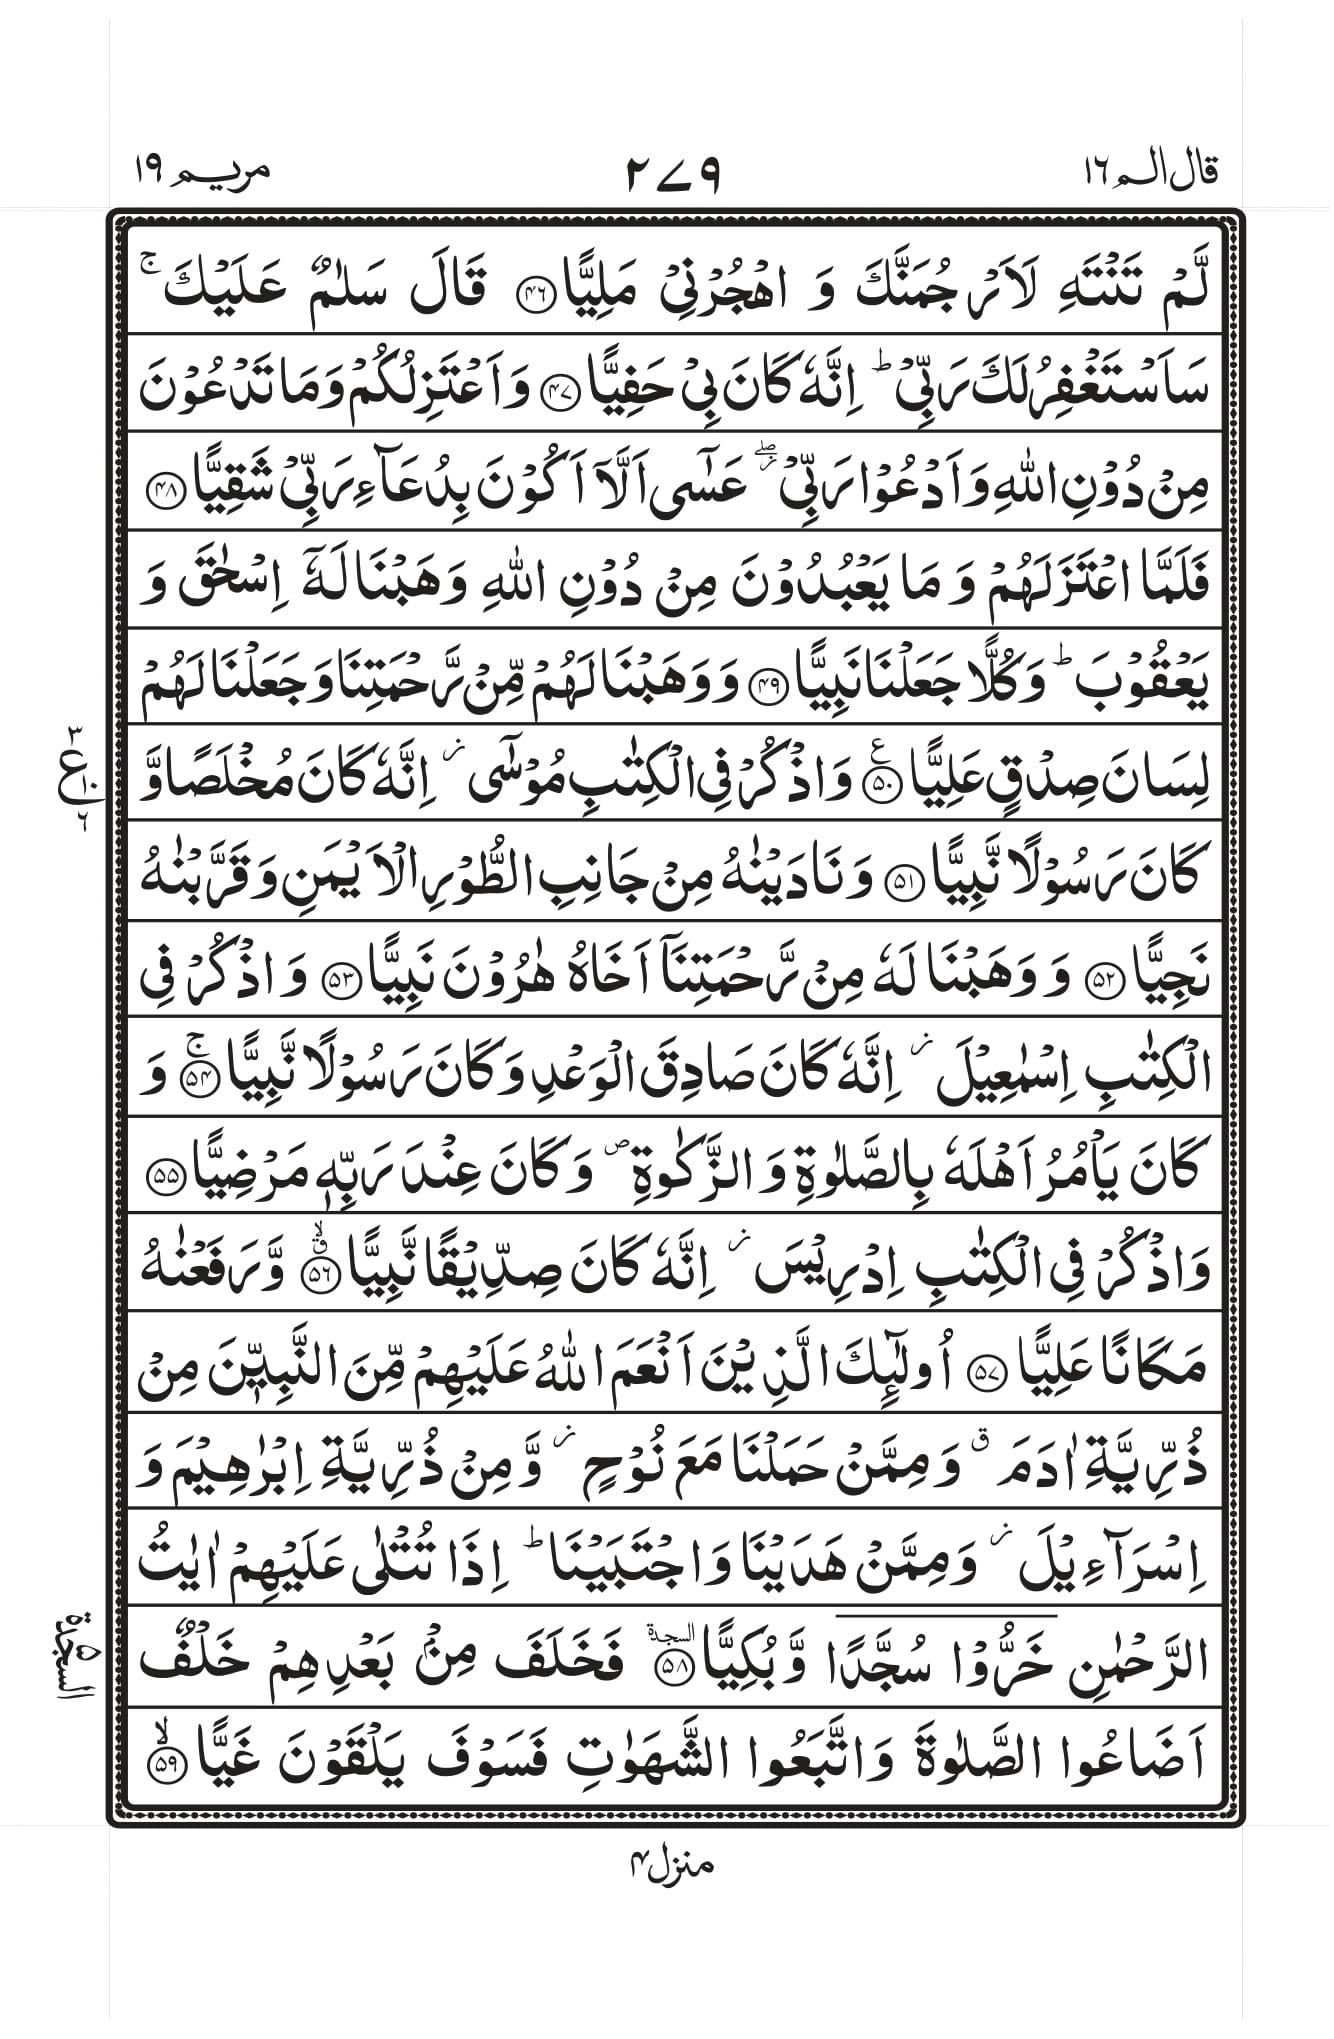 قال الم ١٦
٢٧٩
مريم ١٩
لَّمْ تَنْتَهِ لَاَرْجُمَنَّكَ وَ اهْجُرْنِيْ مَلِيًّا ۝۴۶ قَالَ سَلٰمٌ عَلَيْكَ ۚ
سَاَسْتَغْفِرُ لَكَ رَبِّيْ ؕ اِنَّهٗ كَانَ بِيْ حَفِيًّا ۝۴۷ وَ اَعْتَزِلُكُمْ وَ مَا تَدْعُوْنَ
مِنْ دُوْنِ اللّٰهِ وَ اَدْعُوْا رَبِّيْ ۖز عَسٰۤى اَلَّاۤ اَكُوْنَ بِدُعَآءِ رَبِّيْ شَقِيًّا ۝۴۸
فَلَمَّا اعْتَزَلَهُمْ وَ مَا يَعْبُدُوْنَ مِنْ دُوْنِ اللّٰهِ وَهَبْنَا لَهٗۤ اِسْحٰقَ وَ
يَعْقُوْبَ ؕ وَ كُلًّا جَعَلْنَا نَبِيًّا ۝۴۹ وَ وَهَبْنَا لَهُمْ مِّنْ رَّحْمَتِنَا وَ جَعَلْنَا لَهُمْ
لِسَانَ صِدْقٍ عَلِيًّا ۝۵۰ ع وَ اذْكُرْ فِي الْكِتٰبِ مُوْسٰۤى ز اِنَّهٗ كَانَ مُخْلَصًا وَّ
٣
ع
١٠
٦
كَانَ رَسُوْلًا نَّبِيًّا ۝۵۱ وَ نَادَيْنٰهُ مِنْ جَانِبِ الطُّوْرِ الْاَيْمَنِ وَ قَرَّبْنٰهُ
نَجِيًّا ۝۵۲ وَ وَهَبْنَا لَهٗ مِنْ رَّحْمَتِنَاۤ اَخَاهُ هٰرُوْنَ نَبِيًّا ۝۵۳ وَ اذْكُرْ فِي
الْكِتٰبِ اِسْمٰعِيْلَ ز اِنَّهٗ كَانَ صَادِقَ الْوَعْدِ وَ كَانَ رَسُوْلًا نَّبِيًّا ۝۵۴ۚ وَ
كَانَ يَاْمُرُ اَهْلَهٗ بِالصَّلٰوةِ وَ الزَّكٰوةِ ص وَ كَانَ عِنْدَ رَبِّهٖ مَرْضِيًّا ۝۵۵
وَ اذْكُرْ فِي الْكِتٰبِ اِدْرِيْسَ ز اِنَّهٗ كَانَ صِدِّيْقًا نَّبِيًّا ۝۵۶ۗۙ وَّ رَفَعْنٰهُ
مَكَانًا عَلِيًّا ۝۵۷ اُولٰٓئِكَ الَّذِيْنَ اَنْعَمَ اللّٰهُ عَلَيْهِمْ مِّنَ النَّبِيّٖنَ مِنْ
ذُرِّيَّةِ اٰدَمَ ق وَ مِمَّنْ حَمَلْنَا مَعَ نُوْحٍ ز وَّ مِنْ ذُرِّيَّةِ اِبْرٰهِيْمَ وَ
اِسْرَآءِيْلَ ز وَ مِمَّنْ هَدَيْنَا وَ اجْتَبَيْنَا ؕ اِذَا تُتْلٰى عَلَيْهِمْ اٰيٰتُ
الرَّحْمٰنِ خَرُّوْا سُجَّدًا وَّ بُكِيًّا ۝۵۸ السجدة فَخَلَفَ مِنْۢ بَعْدِهِمْ خَلْفٌ
السجدة ۵
اَضَاعُوا الصَّلٰوةَ وَ اتَّبَعُوا الشَّهَوٰتِ فَسَوْفَ يَلْقَوْنَ غَيًّا ۝۵۹ۙ
منزل ۴